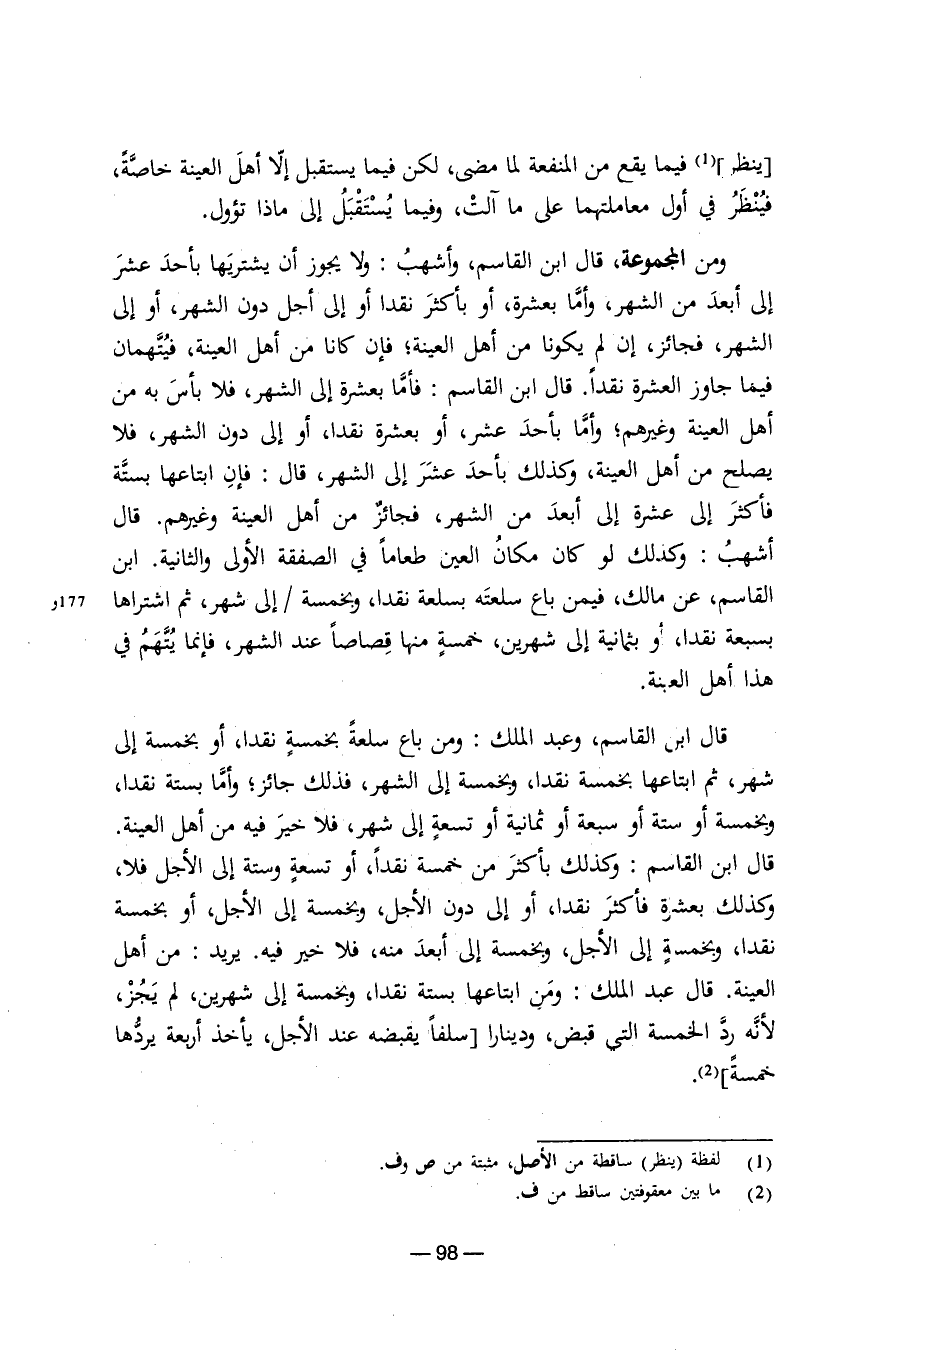 [ينظر](1) فيما يقع من المنفعة لما مضى، لكن فيما يستقبل إلّا أهلَ العينة خاصَّةً،
فيُنْظَرُ في أول معاملتهما على ما آلتْ، وفيما يُسْتَقْبَلُ إلى ماذا تؤول.
ومن المجموعة، قال ابن القاسم، وأشهبُ : ولا يجوز أن يشتريَها بأحدَ عشرَ
إلى أبعدَ من الشهر، وأمَّا بعشرة، أو بأكثرَ نقدا أو إلى أجل دون الشهر، أو إلى
الشهر، فجائز، إن لم يكونا من أهل العينة؛ فإن كانا من أهل العينة، فيُتَّهمان
فيما جاوز العشرة نقداً. قال ابن القاسم : فأمَّا بعشرة إلى الشهر، فلا بأسَ به من
أهل العينة وغيرهم؛ وأمَّا بأحدَ عشر، أو بعشرة نقدا، أو إلى دون الشهر، فلا
يصلح من أهل العينة، وكذلك بأحدَ عشَرَ إلى الشهر، قال : فإنِ ابتاعها بستَّة
فأكثرَ إلى عشرة إلى أبعدَ من الشهر، فجائزٌ من أهل العينة وغيرهم. قال
أشهبُ : وكذلك لو كان مكانُ العين طعاماً في الصفقة الأولى والثانية. ابن
القاسم، عن مالك، فيمن باع سلعتَه بسلعة نقدا، وبخمسة / إلى شهر، ثم اشتراها 177و
بسبعة نقدا، أو بثمانية إلى شهرين، خمسةٍ منها قِصاصاً عند الشهر، فإنما يُتَّهَمُ في
هذا أهل العينة.
قال ابن القاسم، وعبد الملك : ومن باع سلعةً بخمسةٍ نقدا، أو بخمسة إلى
شهر، ثم ابتاعها بخمسة نقدا، وبخمسة إلى الشهر، فذلك جائز؛ وأمَّا بستة نقدا،
وبخمسة أو ستة أو سبعة أو ثمانية أو تسعةٍ إلى شهر، فلا خيرَ فيه من أهل العينة.
قال ابن القاسم : وكذلك بأكثرَ من خمسة نقداً، أو تسعةٍ وستة إلى الأجل فلا،
وكذلك بعشرة فأكثرَ نقدا، أو إلى دون الأجل، وبخمسة إلى الأجل، أو بخمسة
نقدا، وبخمسةٍ إلى الأجل، وبخمسة إلى أبعدَ منه، فلا خير فيه. يريد : من أهل
العينة. قال عبد الملك : ومَنِ ابتاعها بستة نقدا، وبخمسة إلى شهرين، لم يَجُزْ،
لأنَّه ردَّ الخمسة التي قبض، ودينارا [سلفاً يقبضه عند الأجل، يأخذ أربعة يردُّها
خمسةً](2).
(1) لفظة (ينظر) ساقطة من الأصل، مثبتة من ص وف.
(2) ما بين معقوفتين ساقط من ف.
— 98 —